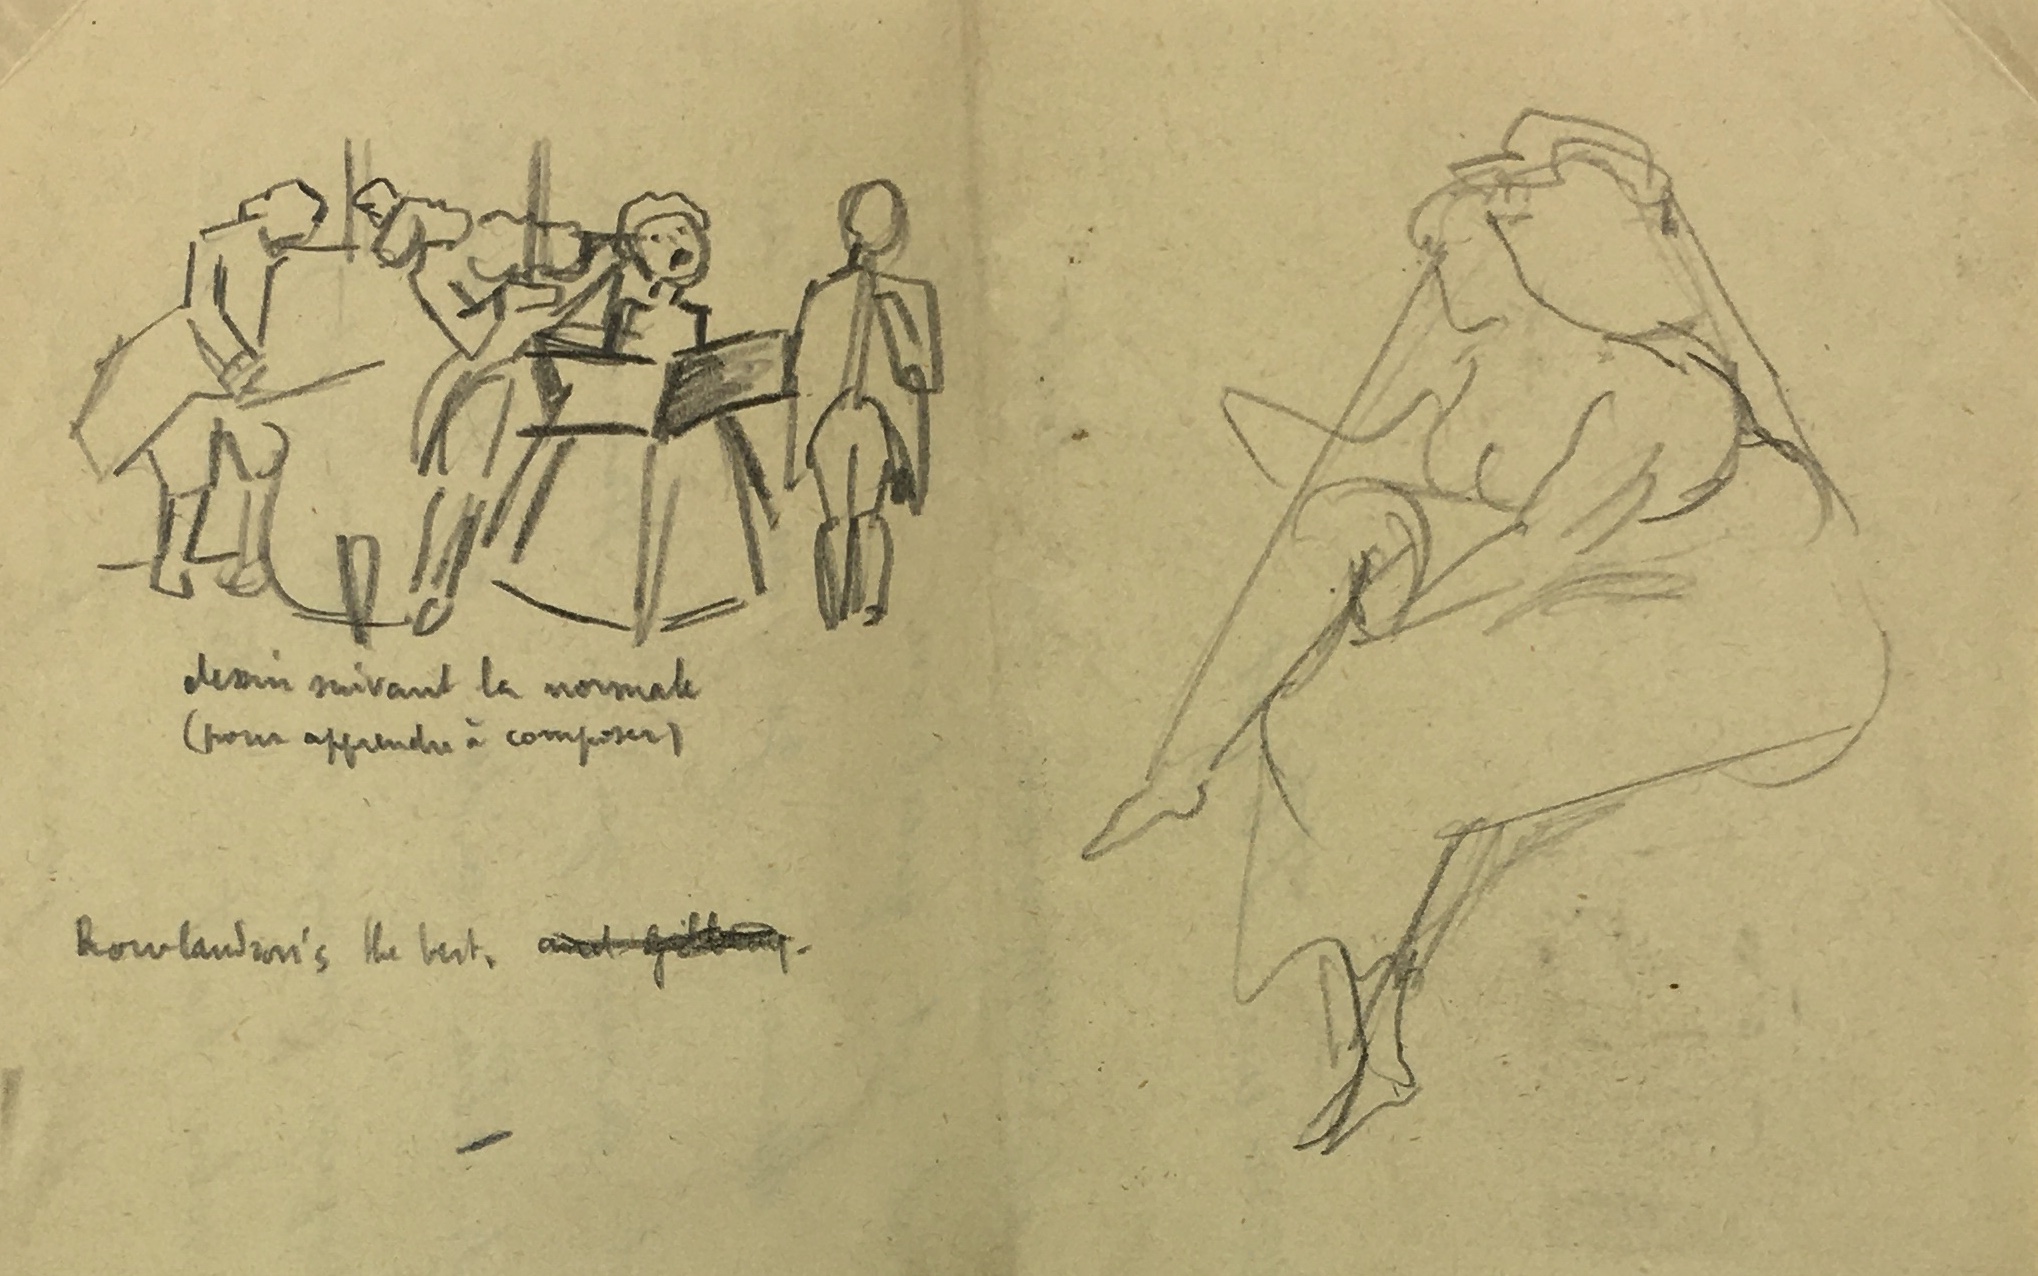 dessin suivant la normale
(pour apprendre à composer)
Rowlandson's the best. and Gillray.